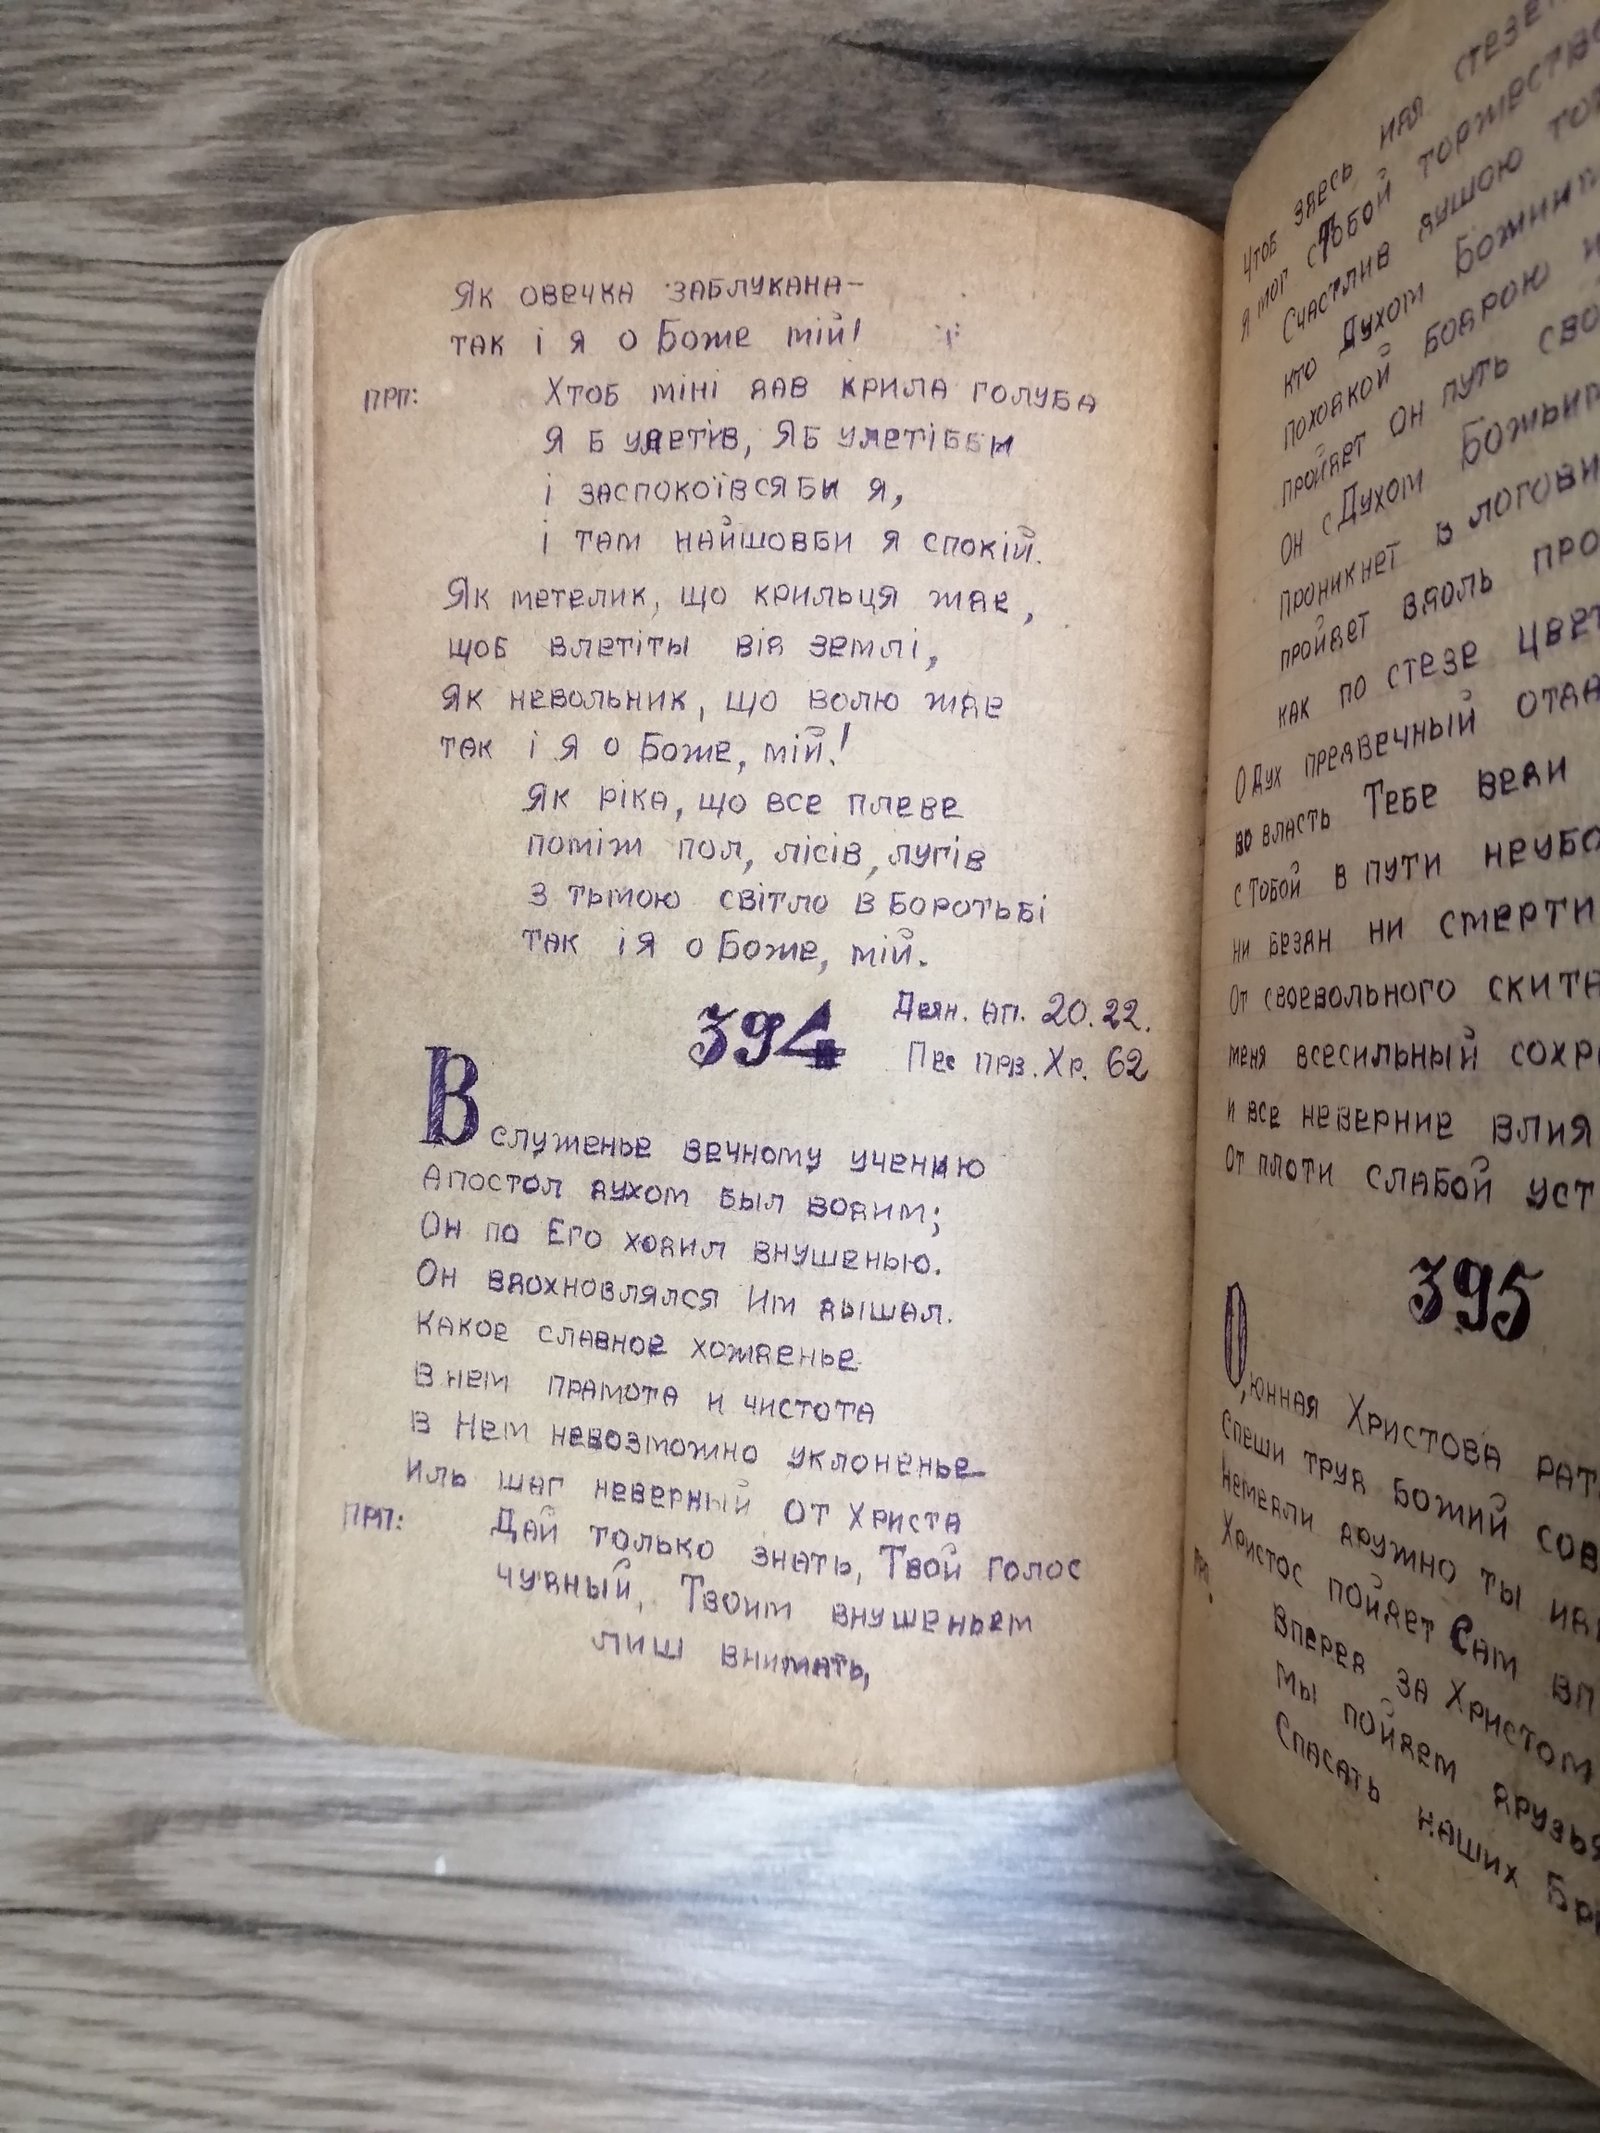 Як овечка заблукана-
так і я о Боже мій!
прп: Хтоб міні дав крила голуба
Я б улетів, Яб улетівби
і заспокоївсяби я,
і там найшовби я спокій.
Як метелик, що крильця жде,
щоб влетіты від землі,
Як невольник, що волю жде
так і я о Боже, мій!
Як ріка, що все плеве
поміж пол, лісів, лугів
з тьмою світло в боротьбі
так і я о Боже, мій.
394 Деян. ап. 20.22.
Пес прв. Хр. 62
В служенье вечному учению
Апостол духом был водим;
Он по Его ходил внушенью.
Он вдохновлялся Им дышал.
Какое славное хожденье
в нем прамота и чистота
в Нем невозможно уклоненье-
иль шаг неверный от Христа
прп: Дай только знать, Твой голос
чудный, Твоим внушеньем
лиш внимать,
Чтоб здесь идя
я мог с Тобой
Счастлив душою
кто Духом Божиим
походкой бодрою
пройдет он путь
Он с Духом Божьим
проникнет в
пройдет вдоль
как по стезе
О Дух предвечный
во власть Тебе веди
с Тобой в пути
ни бездн ни смерти
От своевольного
меня всесильный
и все неверние
От плоти слабой
395
О, юнная Христова
Спеши труд Божий
Немедли дружно ты
Христос пойдет Сам
Вперед за Христом
мы пойдем
Спасать наших